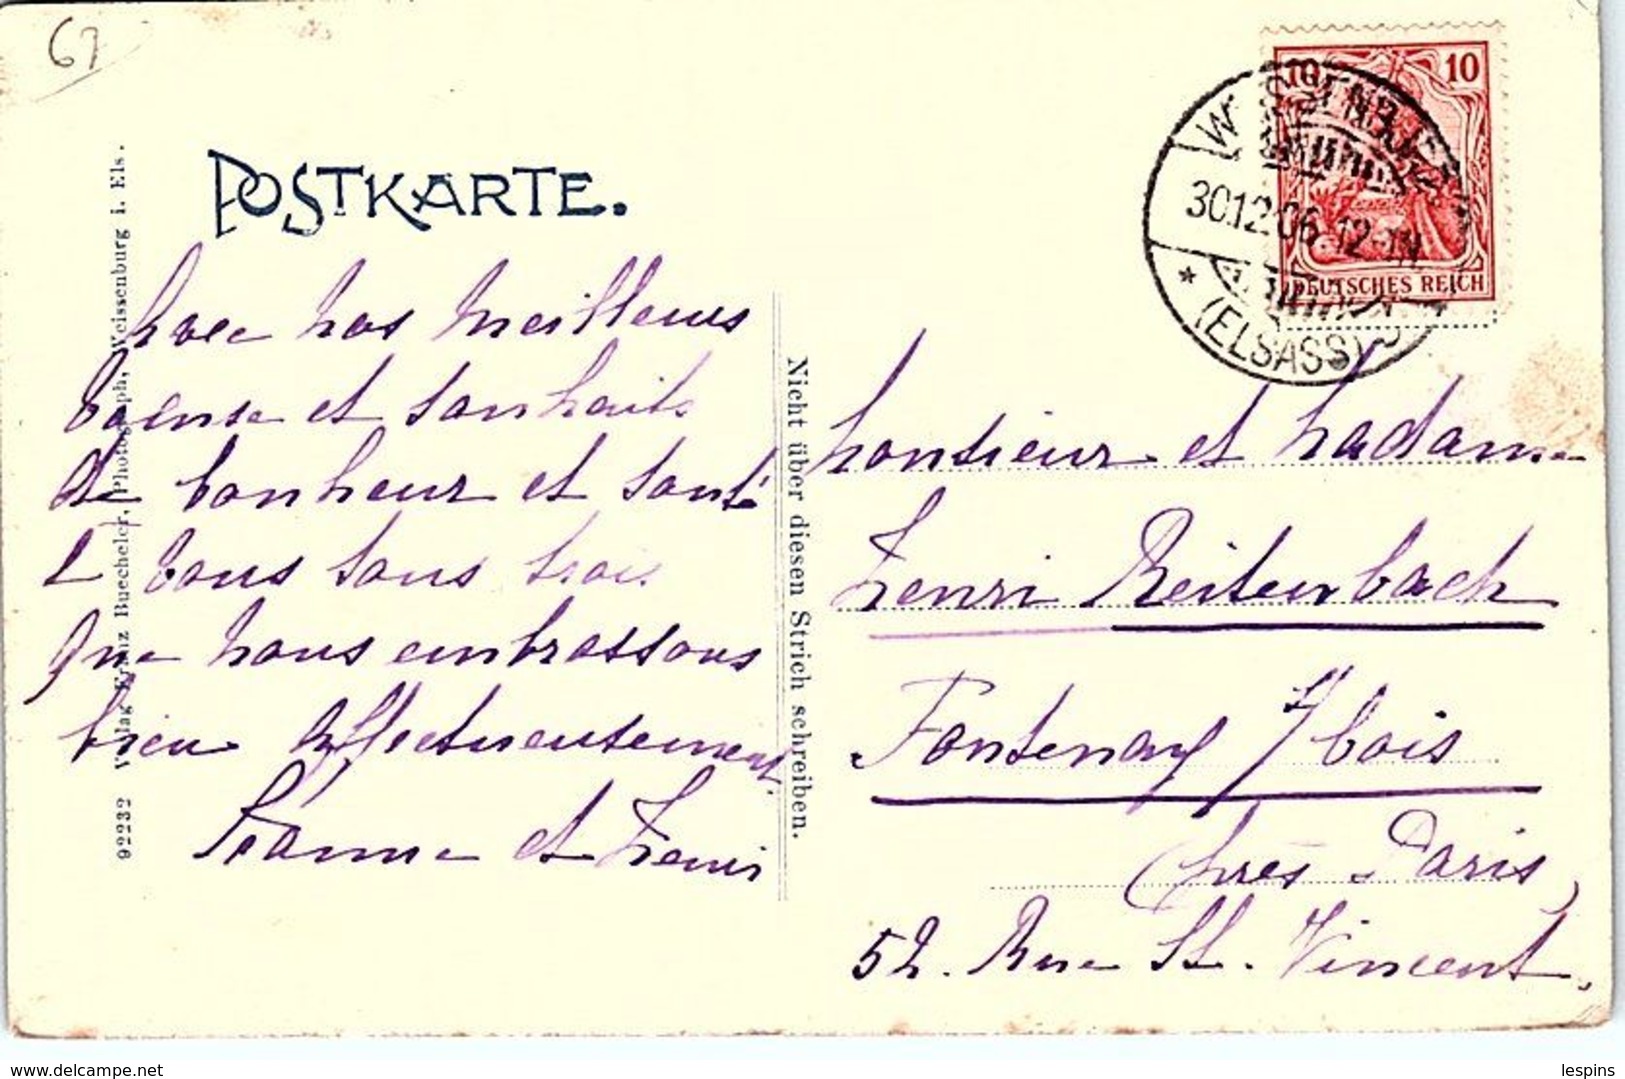 67
POSTKARTE.
10
WEISSENBURG
30.12.06. 12-1N
* (ELSASS)
DEUTSCHES REICH
92232 Verlag Franz Buecheler, Photograph, Weissenburg i. Els.
Nicht über diesen Strich schreiben.
Avec nos meilleurs
voeux et souhaits
de bonheur et santé
à vous tous trois
que nous embrassons
bien affectueusement.
Jeanne et Henri
Monsieur et Madame
Henri Reitenbach
Fontenay s/ bois
(près Paris)
52. Rue St. Vincent.
lespins